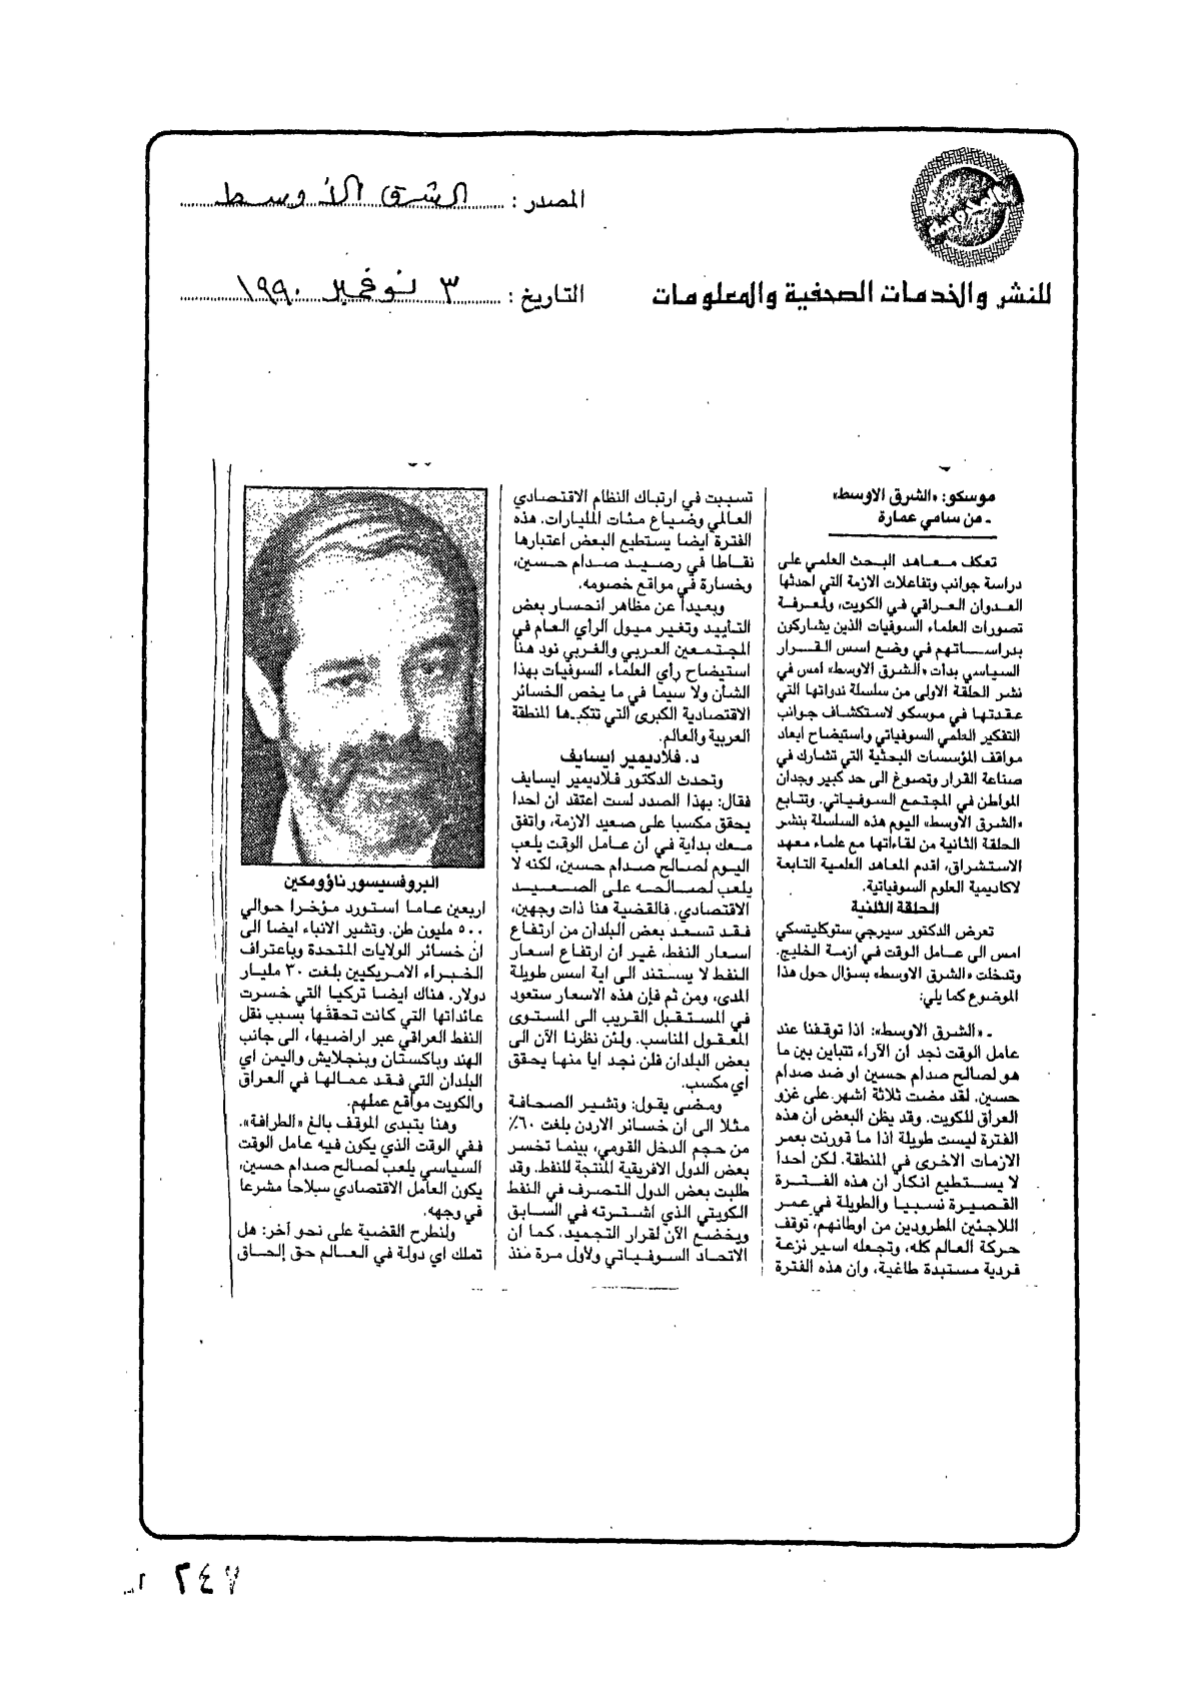 المصدر : الشرق الأوسط
التاريخ : ٣ نوفمبر ١٩٩٠
للنشر والخدمات الصحفية والمعلومات
موسكو: «الشرق الاوسط»
ـ من سامي عمارة
تعكف معاهد البحث العلمي على
دراسة جوانب وتفاعلات الازمة التي احدثها
العدوان العراقي في الكويت، ولمعرفة
تصورات العلماء السوفيات الذين يشاركون
بدراساتهم في وضع اسس القرار
السياسي بدأت «الشرق الاوسط» امس في
نشر الحلقة الاولى من سلسلة ندواتها التي
عقدتها في موسكو لاستكشاف جوانب
التفكير العلمي السوفياتي واستيضاح ابعاد
مواقف المؤسسات البحثية التي تشارك في
صناعة القرار وتصوغ الى حد كبير وجدان
المواطن في المجتمع السوفياتي. وتتابع
«الشرق الاوسط» اليوم هذه السلسلة بنشر
الحلقة الثانية من لقاءاتها مع علماء معهد
الاستشراق، اقدم المعاهد العلمية التابعة
لاكاديمية العلوم السوفياتية.
الحلقة الثلنية
تعرض الدكتور سيرجي ستوكليتسكي
امس الى عامل الوقت في ازمة الخليج.
وتدخلت «الشرق الاوسط» بسؤال حول هذا
الموضوع كما يلي:
ـ «الشرق الاوسط»: اذا توقفنا عند
عامل الوقت نجد ان الآراء تتباين بين ما
هو لصالح صدام حسين او ضد صدام
حسين. لقد مضت ثلاثة اشهر على غزو
العراق للكويت. وقد يظن البعض ان هذه
الفترة ليست طويلة اذا ما قورنت بعمر
الازمات الاخرى في المنطقة. لكن احدا
لا يستطيع انكار ان هذه الفترة
القصيرة نسبيا والطويلة في عمر
اللاجئين المطرودين من اوطانهم، توقف
حركة العالم كله، وتجعله اسير نزعة
فردية مستبدة طاغية، وان هذه الفترة
تسببت في ارتباك النظام الاقتصادي
العالمي وضياع مئات المليارات. هذه
الفترة ايضا يستطيع البعض اعتبارها
نقاطا في رصيد صدام حسين،
وخسارة في مواقع خصومه.
وبعيداً عن مظاهر انحسار بعض
التأييد وتغير ميول الرأي العام في
المجتمعين العربي والغربي نود هنا
استيضاح رأي العلماء السوفيات بهذا
الشأن ولا سيما في ما يخص الخسائر
الاقتصادية الكبرى التي تتكبدها المنطقة
العربية والعالم.
د. فلاديمير ايسايف
وتحدث الدكتور فلاديمير ايسايف
فقال: بهذا الصدد لست اعتقد ان احدا
يحقق مكسبا على صعيد الازمة، واتفق
معك بداية في ان عامل الوقت يلعب
اليوم لصالح صدام حسين، لكنه لا
يلعب لصالحه على الصعيد
الاقتصادي. فالقضية هنا ذات وجهين،
فقد تسعد بعض البلدان من ارتفاع
اسعار النفط، غير ان ارتفاع اسعار
النفط لا يستند الى اية اسس طويلة
المدى، ومن ثم فإن هذه الاسعار ستعود
في المستقبل القريب الى المستوى
المعقول المناسب. ولئن نظرنا الآن الى
بعض البلدان فلن نجد ايا منها يحقق
أي مكسب.
ومضى يقول: وتشير الصحافة
مثلا الى ان خسائر الاردن بلغت ٦٠٪
من حجم الدخل القومي، بينما تخسر
بعض الدول الافريقية المنتجة للنفط. وقد
طلبت بعض الدول التصرف في النفط
الكويتي الذي اشترته في السابق
ويخضع الآن لقرار التجميد. كما ان
الاتحاد السوفياتي ولاول مرة منذ
البروفسيسور ناؤومكين
اربعين عاما استورد مؤخرا حوالي
٥٠٠ مليون طن. وتشير الانباء ايضا الى
ان خسائر الولايات المتحدة وباعتراف
الخبراء الامريكيين بلغت ٣٠ مليار
دولار. هناك ايضا تركيا التي خسرت
عائداتها التي كانت تحققها بسبب نقل
النفط العراقي عبر اراضيها، الى جانب
الهند وباكستان وبنجلايش واليمن اي
البلدان التي فقد عمالها في العراق
والكويت مواقع عملهم.
وهنا يتبدى الموقف بالغ «الطرافة».
ففي الوقت الذي يكون فيه عامل الوقت
السياسي يلعب لصالح صدام حسين،
يكون العامل الاقتصادي سلاحا مشرعا
في وجهه.
ولنطرح القضية على نحو آخر: هل
تملك اي دولة في العالم حق إلحاق
٢٤٧